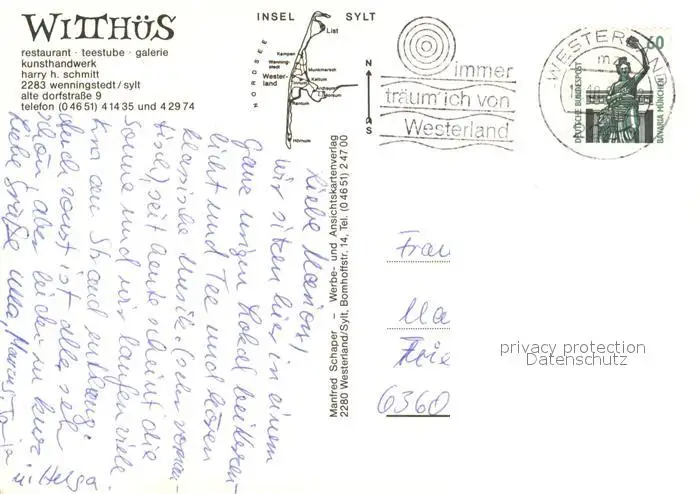 WITTHÜS
restaurant · teestube · galerie
kunsthandwerk
harry h. schmitt
2283 wenningstedt/sylt
alte dorfstraße 9
telefon (0 46 51) 4 14 35 und 4 29 74
INSEL SYLT
NORDSEE
List
Kampen
Wenning-
stedt
Munkmarsch
Wester-
land
Keitum
Archsum
Morsum
Rantum
Hörnum
N
S
immer
träum´ich von
Westerland
WESTERLAND
60
DEUTSCHE BUNDESPOST
BAVARIA MÜNCHEN
Manfred Schaper – Werbe- und Ansichtskartenverlag
2280 Westerland/Sylt, Bomhoffstr. 14, Tel. (0 46 51) 2 47 00
Liebe Marion,
wir sitzen hier in einem
Ganz urigen Lokal bei Kerzen-
licht und Tee und hören
klassische Musik (oder roman-
tische) seit heute scheint die
Sonne und wir laufen viele
km am Strand entlang.
Auch sonst ist alles sehr
schön, aber leider zu kurz
Liebe Grüße Ulla,
u. Helga.
Frau
Ma
6360
privacy protection
Datenschutz